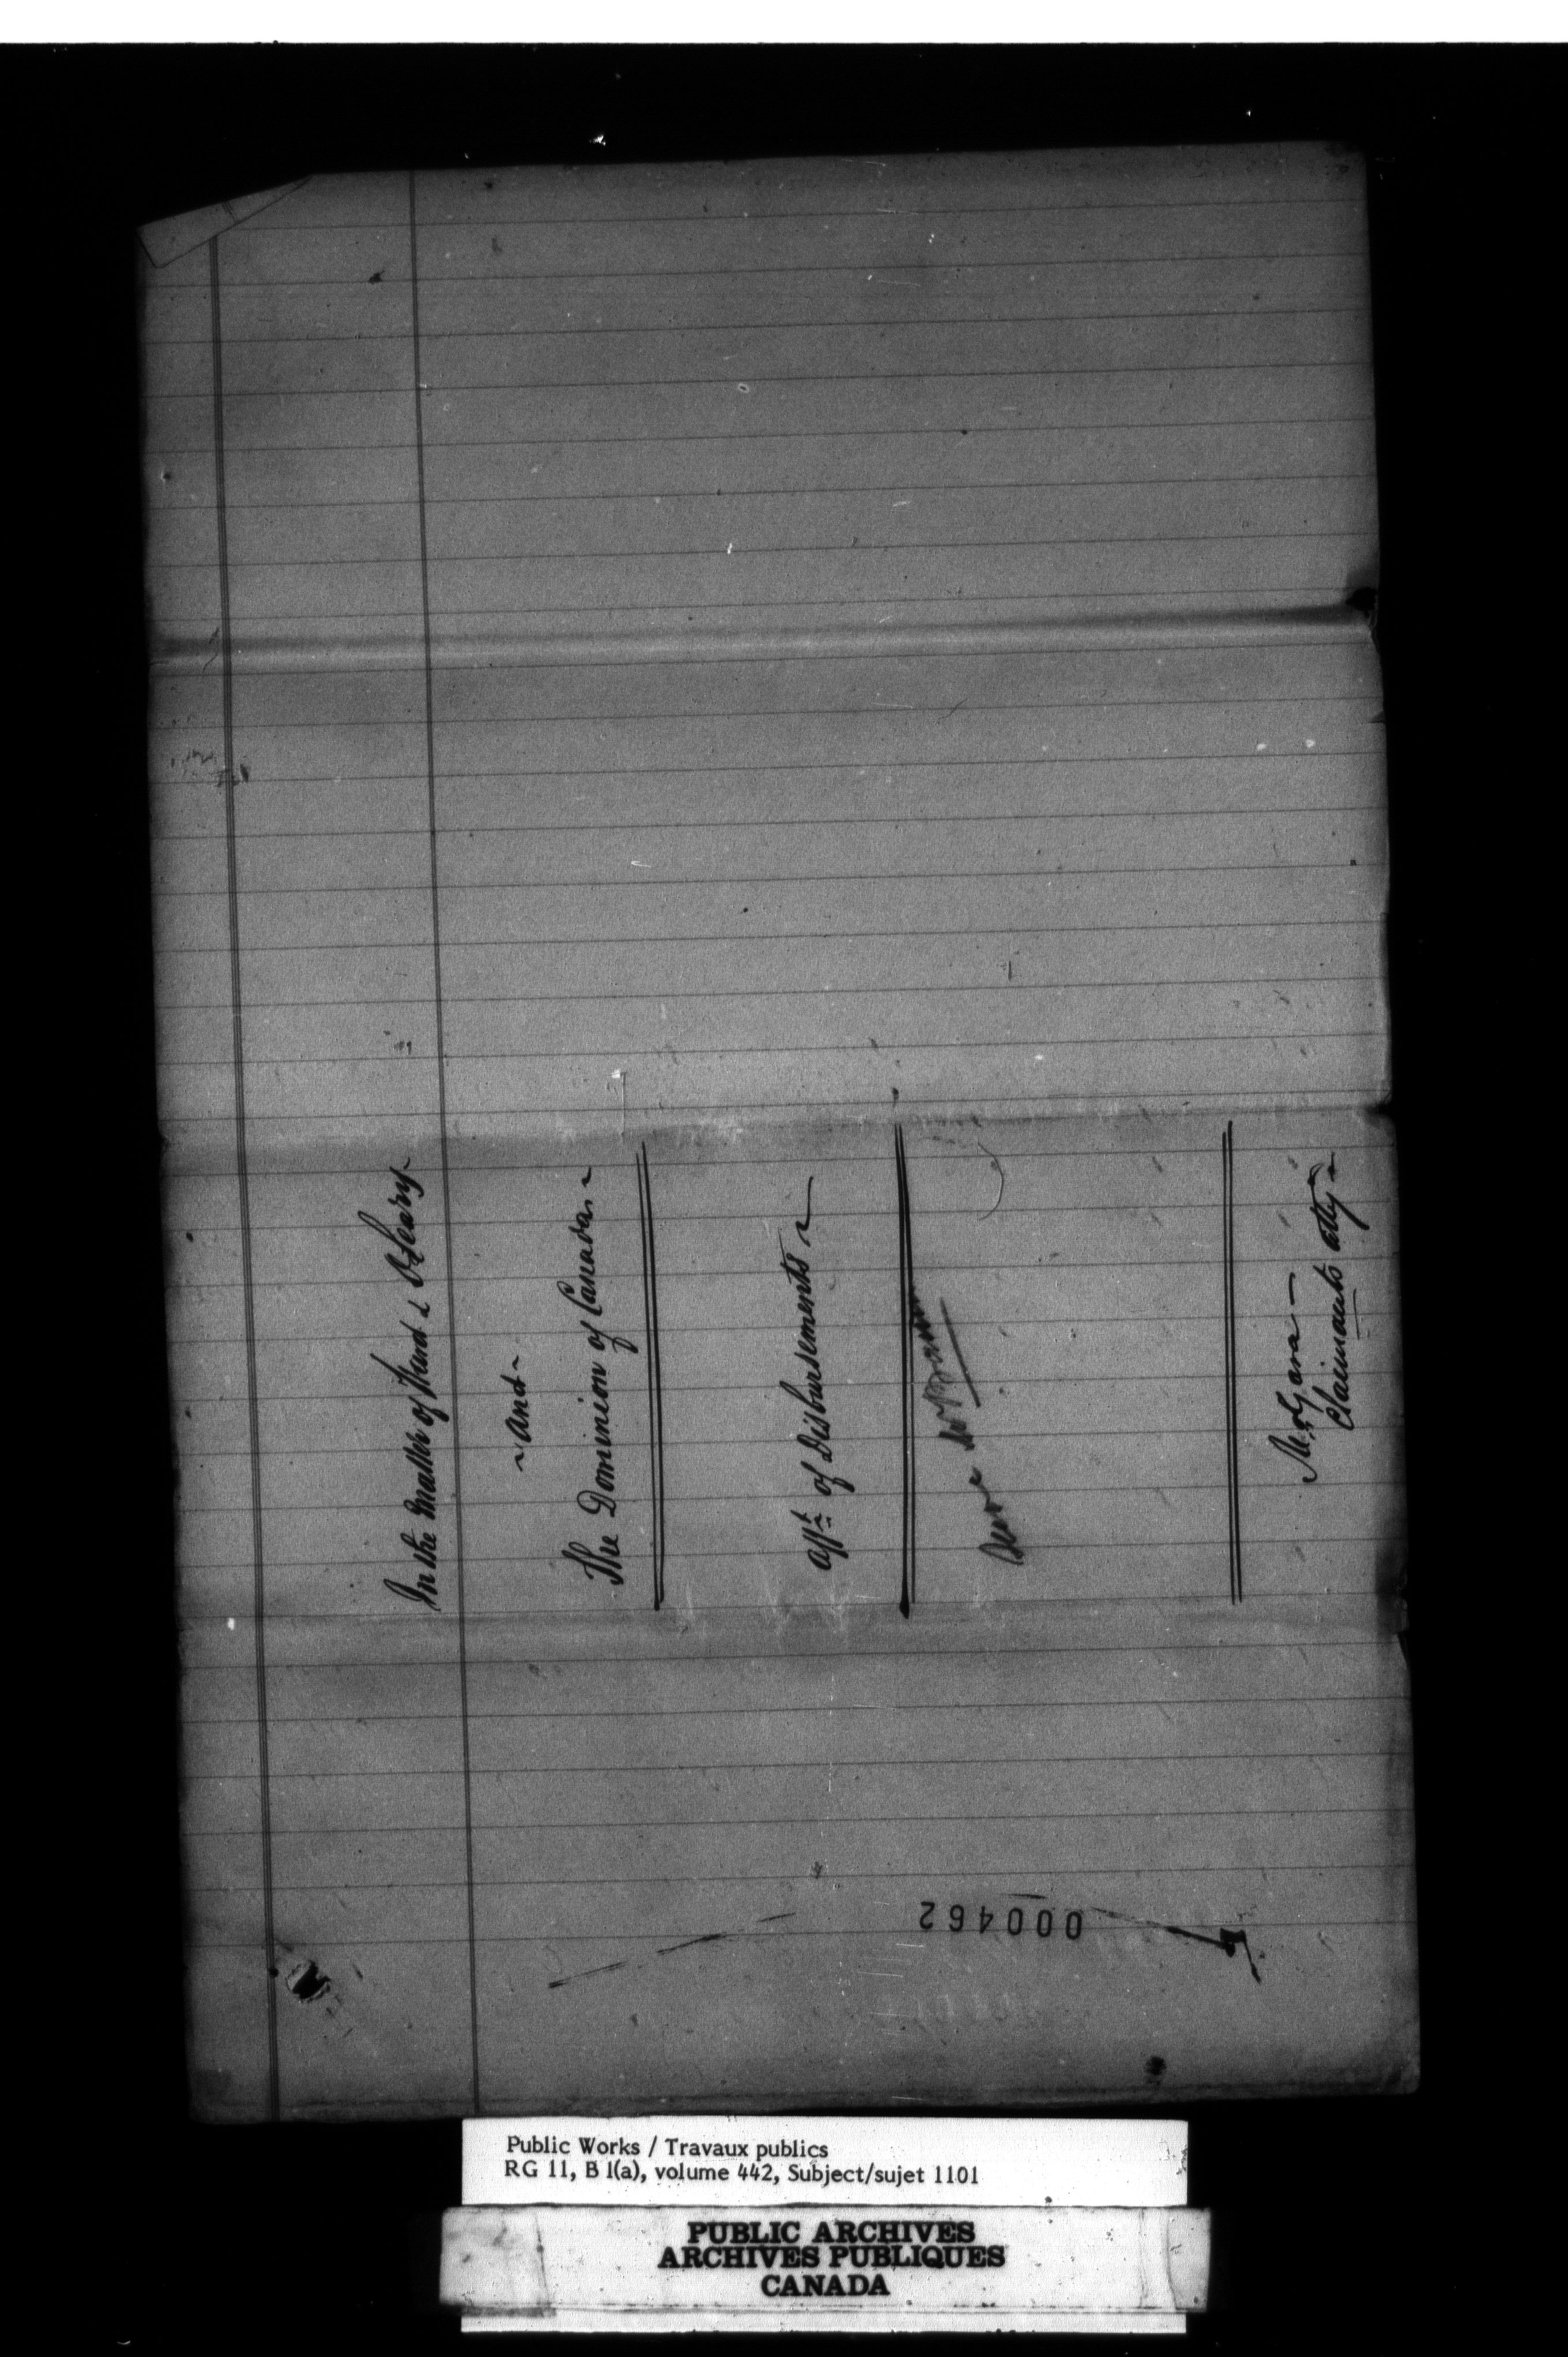 In the Matter of Ward & O'Leary
~ And ~
The Dominion of Canada. ~
afft of Disbursements ~
McGara —
Claimants atty
000462
Public Works / Travaux publics
RG 11, B 1(a), volume 442, Subject/sujet 1101
PUBLIC ARCHIVES
ARCHIVES PUBLIQUES
CANADA